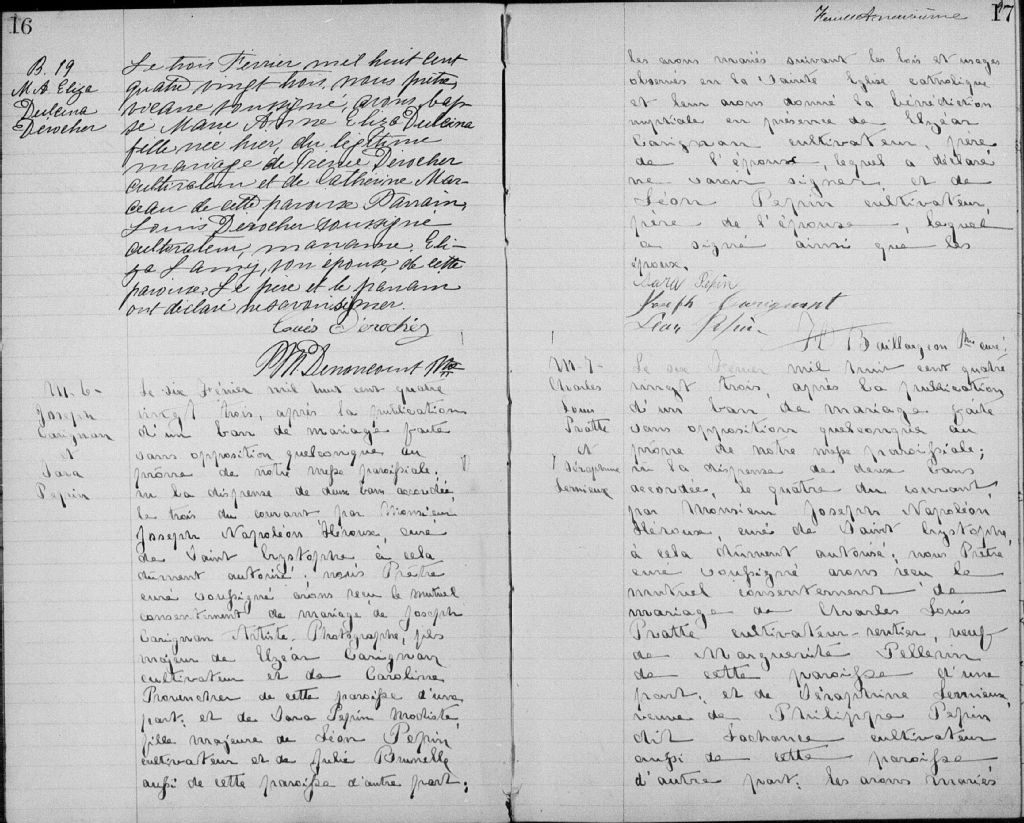 16
B. 19
M. A. Eliza
Dulcina
Derocher
Le trois Février mil huit cent
quatre vingt trois, nous prêtre
vicaire soussigné, avons bap
sé Marie Anne Eliza Dulcina
fille née hier, du légitime
mariage de Derocher
cultivateur et de Cathérine Mar-
ceau de cette paroisse. Parrain,
Louis Derocher soussigné
cultivateur, marraine, Eli-
za Lamy, son épouse, de cette
paroisse. Le père et le parrain
ont déclaré ne savoir signer.
Louis Derocher
Denoncourt Ptre
M. 6-
Joseph
Carignan
et
Sara
Pepin
Le six Février mil huit cent quatre
vingt trois, après la publication
d'un ban de mariage faite
sans opposition quelconque au
prône de notre messe paroissiale;
vu la dispense de deux bans accordée,
le trois du courant par Monsieur
Joseph Napoléon Héroux, curé
de Saint Crystophe à cela
dûment autorisé; nous Prêtre
curé soussigné avons reçu le mutuel
consentement de mariage de Joseph
Carignan Artiste Photographe, fils
majeur de Elzéar Carignan
cultivateur et de Caroline
Provencher de cette paroisse d'une
part; et de Sara Pepin Modiste,
fille majeure de Léon Pepin
cultivateur et de Julie Brunelle
aussi de cette paroisse d'autre part;
17
les avons mariés suivant les lois et usages
observés en la Sainte Eglise catholique
et leur avons donné la bénédiction
nuptiale en présence de Elzéar
Carignan cultivateur, père
de l'époux, lequel a déclaré
ne savoir signer, et de
Léon Pepin cultivateur,
père de l'épouse, lequel
a signé ainsi que les
époux.
Sara Pepin
Joseph Carignant
Léon Pepin
Baillargeon Ptre curé
M-7-
Charles
Louis
Pratte
et
Séraphine
Lemieux
Le six Février mil huit cent quatre
vingt trois, après la publication
d'un ban de mariage faite
sans opposition quelconque au
prône de notre messe paroissiale;
vu la dispense de deux bans
accordée, le quatre du courant,
par Monsieur Joseph Napoléon
Héroux, curé de Saint Crystophe,
à cela dûment autorisé; nous Prêtre
curé soussigné avons reçu le
mutuel consentement de
mariage de Charles Louis
Pratte cultivateur-rentier, veuf
de Marguerite Pellerin
de cette paroisse d'une
part; et de Séraphine Lemieux,
veuve de Philippe Pepin
dit Lachance cultivateur
aussi de cette paroisse
d'autre part; les avons mariés